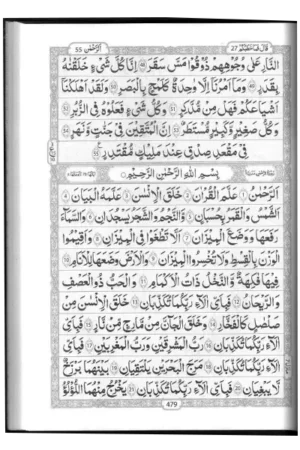 قَالَ فَمَا خَطْبُكُمْ 27 اَلرَّحْمٰن 55
النَّارِ عَلٰى وُجُوْهِهِمْ ذُوْقُوْا مَسَّ سَقَرَ ۝ اِنَّا كُلَّ شَيْءٍ خَلَقْنٰهُ
بِقَدَرٍ ۝ وَمَآ اَمْرُنَآ اِلَّا وَاحِدَةٌ كَلَمْحٍۭ بِالْبَصَرِ ۝ وَلَقَدْ اَهْلَكْنَآ
اَشْيَاعَكُمْ فَهَلْ مِنْ مُّدَّكِرٍ ۝ وَكُلُّ شَيْءٍ فَعَلُوْهُ فِى الزُّبُرِ ۝
وَكُلُّ صَغِيْرٍ وَّكَبِيْرٍ مُّسْتَطَرٌ ۝ اِنَّ الْمُتَّقِيْنَ فِيْ جَنّٰتٍ وَّنَهَرٍ ۝
فِيْ مَقْعَدِ صِدْقٍ عِنْدَ مَلِيْكٍ مُّقْتَدِرٍ ۝
بِسْمِ اللهِ الرَّحْمٰنِ الرَّحِيْمِ
اَلرَّحْمٰنُ ۝ عَلَّمَ الْقُرْاٰنَ ۝ خَلَقَ الْاِنْسَانَ ۝ عَلَّمَهُ الْبَيَانَ ۝
اَلشَّمْسُ وَالْقَمَرُ بِحُسْبَانٍ ۝ وَّالنَّجْمُ وَالشَّجَرُ يَسْجُدٰنِ ۝ وَالسَّمَآءَ
رَفَعَهَا وَوَضَعَ الْمِيْزَانَ ۝ اَلَّا تَطْغَوْا فِى الْمِيْزَانِ ۝ وَاَقِيْمُوا
الْوَزْنَ بِالْقِسْطِ وَلَا تُخْسِرُوا الْمِيْزَانَ ۝ وَالْاَرْضَ وَضَعَهَا لِلْاَنَامِ ۝
فِيْهَا فَاكِهَةٌ وَّالنَّخْلُ ذَاتُ الْاَكْمَامِ ۝ وَالْحَبُّ ذُو الْعَصْفِ
وَالرَّيْحَانُ ۝ فَبِاَيِّ اٰلَآءِ رَبِّكُمَا تُكَذِّبٰنِ ۝ خَلَقَ الْاِنْسَانَ مِنْ
صَلْصَالٍ كَالْفَخَّارِ ۝ وَخَلَقَ الْجَآنَّ مِنْ مَّارِجٍ مِّنْ نَّارٍ ۝ فَبِاَيِّ
اٰلَآءِ رَبِّكُمَا تُكَذِّبٰنِ ۝ رَبُّ الْمَشْرِقَيْنِ وَرَبُّ الْمَغْرِبَيْنِ ۝ فَبِاَيِّ
اٰلَآءِ رَبِّكُمَا تُكَذِّبٰنِ ۝ مَرَجَ الْبَحْرَيْنِ يَلْتَقِيٰنِ ۝ بَيْنَهُمَا بَرْزَخٌ
لَّا يَبْغِيٰنِ ۝ فَبِاَيِّ اٰلَآءِ رَبِّكُمَا تُكَذِّبٰنِ ۝ يَخْرُجُ مِنْهُمَا اللُّؤْلُؤُ
479